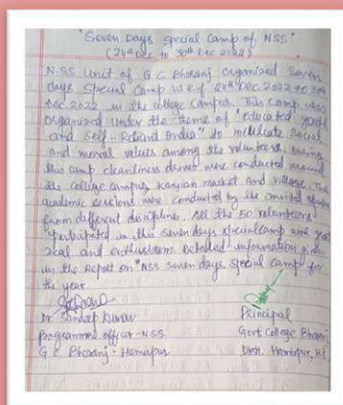 "Seven Days special camp of NSS"
(24th Dec to 30th Dec 2022)
N.SS Unit of G C Bhoranj organized Seven
days Special Camp w.e.f 24th Dec 2022 to 30th
Dec. 2022 in the college Campus. This Camp was
organized under the theme of "Educated youth
and Self-Reliant India" to inculcate social
and moral values among the volunteers, during
this camp cleanliness drives were conducted around
the college campus, Kanjian market and village. The
academic sessions were conducted by the invited
from different disciplines. All the 50 volunteers
participated in this sevendays special camp with great
zeal and enthusiasm. Detailed information given
in the Report on "NSS seven days special Camp for
the year
Dr. Sandeep Kumar
Programme officer-NSS
G C Bhoranj - Hamirpur
Principal
Govt College Bhoranj
Distt. Hamirpur, H.P